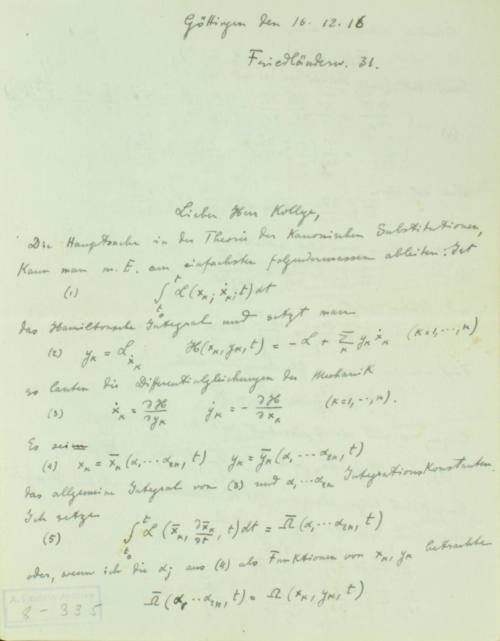 Göttingen den 16. 12. 16
Friedländerw. 31.
Lieber Herr Kollege,
Die Hauptsache in der Theorie der kanonischen Substitutionen,
kann man m. E. am einfachsten folgendermassen ableiten. Ist
(1) ∫_{t₀}^{t} L(x_κ, ẋ_κ, t) dt
das Hamiltonsche Integral und setzt man
(2) y_κ = L_{ẋ_κ} H(x_κ, y_κ, t) = − L + Σ_κ y_κ ẋ_κ (κ=1, …, n)
so lauten die Differentialgleichungen der Mechanik
(3) ẋ_κ = ∂H/∂y_κ ẏ_κ = − ∂H/∂x_κ (κ=1, …, n).
Es sei
(4) x_κ = x̄_κ (α, … α_{2n}, t) y_κ = ȳ_κ (α, … α_{2n}, t)
das allgemeine Integral von (3) und α, … α_{2n} Integrationskonstanten.
Ich setze
(5) ∫_{t₀}^{t} L (x̄_κ, ∂x̄_κ/∂t, t) dt = Ω̄ (α, … α_{2n}, t)
oder, wenn ich die α_i aus (4) als Funktionen von x_κ, y_κ betrachte
Ω̄ (α, … α_{2n}, t) = Ω (x_κ, y_κ, t)
8 - 335